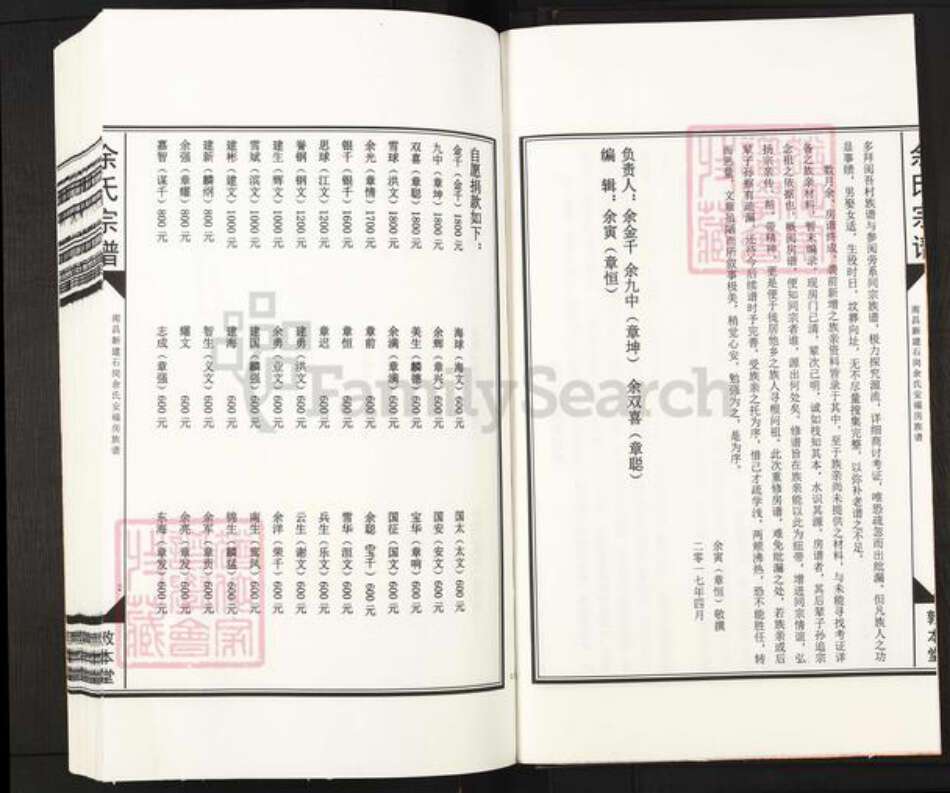 余氏宗谱
南昌新建石岗余氏安福房族谱
敦本堂
多拜阅吾村族谱与参阅旁系同宗族谱，极力探究源流，详细商讨考证，唯恐疏忽而出纰漏，但凡族人之功
是事绩，男娶女适，生殁时日，坟葬向址，无不尽量搜集完整，以弥补老谱之不足。
数月余，房谱终成，袭前新增之族亲资料皆录于其中，至于族亲尚未提供之材料，与未能寻找考证详
备之族亲材料，暂未编录，现房门已清，辈次已明，诚如枝知其本，水识其源，房谱者，其后辈子孙追宗
念祖之依据也，概阅房谱，便知同宗者谁，源出何处矣，修谱旨在族亲能以此为纽带，增进同宗情谊，弘
扬宗亲传、帮、带精神，更是便于徙居他乡之族人寻根问祖，此次重修房谱，难免纰漏之处，若族亲或后
辈子孙察有疏漏，还待今后续谱时予完善，受族亲之托为序，惜己才疏学浅，两颊沸热，恐不能胜任，转
而思量，文章虽陋而所叙事极美，稍觉心安，勉强为之，是为序。
余寅（章恒）敬撰
二零一七年四月
负责人：余金千 余九中（章坤） 余双喜（章聪）
编 辑：余寅（章恒）
自愿捐款如下：
金千（金千）1800元 海球（海文）600元 国太（太文）600元
九中（章坤）1800元 余辉（章兴）600元 国安（安文）600元
双喜（章聪）1800元 美生（麟德）600元 宝华（章响）600元
雪球（洪文）1800元 余满（章满）600元 国征（国文）600元
余光（章情）1700元 章前 600元 余聪（雪千）600元
银千（银千）1600元 章恒 600元 雪华（涯文）600元
思球（江文）1200元 章迟 600元 兵生（乐文）600元
誉钢（钢文）1200元 建勇（洪文）600元 云生（谢文）600元
建生（辉文）1000元 余勇（业文）600元 余洋（荣千）600元
雪斌（滨文）1000元 建国（麟强）600元 南生（鸾凤）600元
建彬（建文）1000元 建海 600元 锦生（麟猛）600元
建新（麟纲）800元 智生（义文）600元 余军（章贡）600元
余强（章耀）800元 耀文 600元 余亮（章发）600元
嘉智（谋千）800元 志成（章强）600元 东海（章发）600元
余氏宗谱
南昌新建石岗余氏安福房族谱
敦本堂
FamilySearch